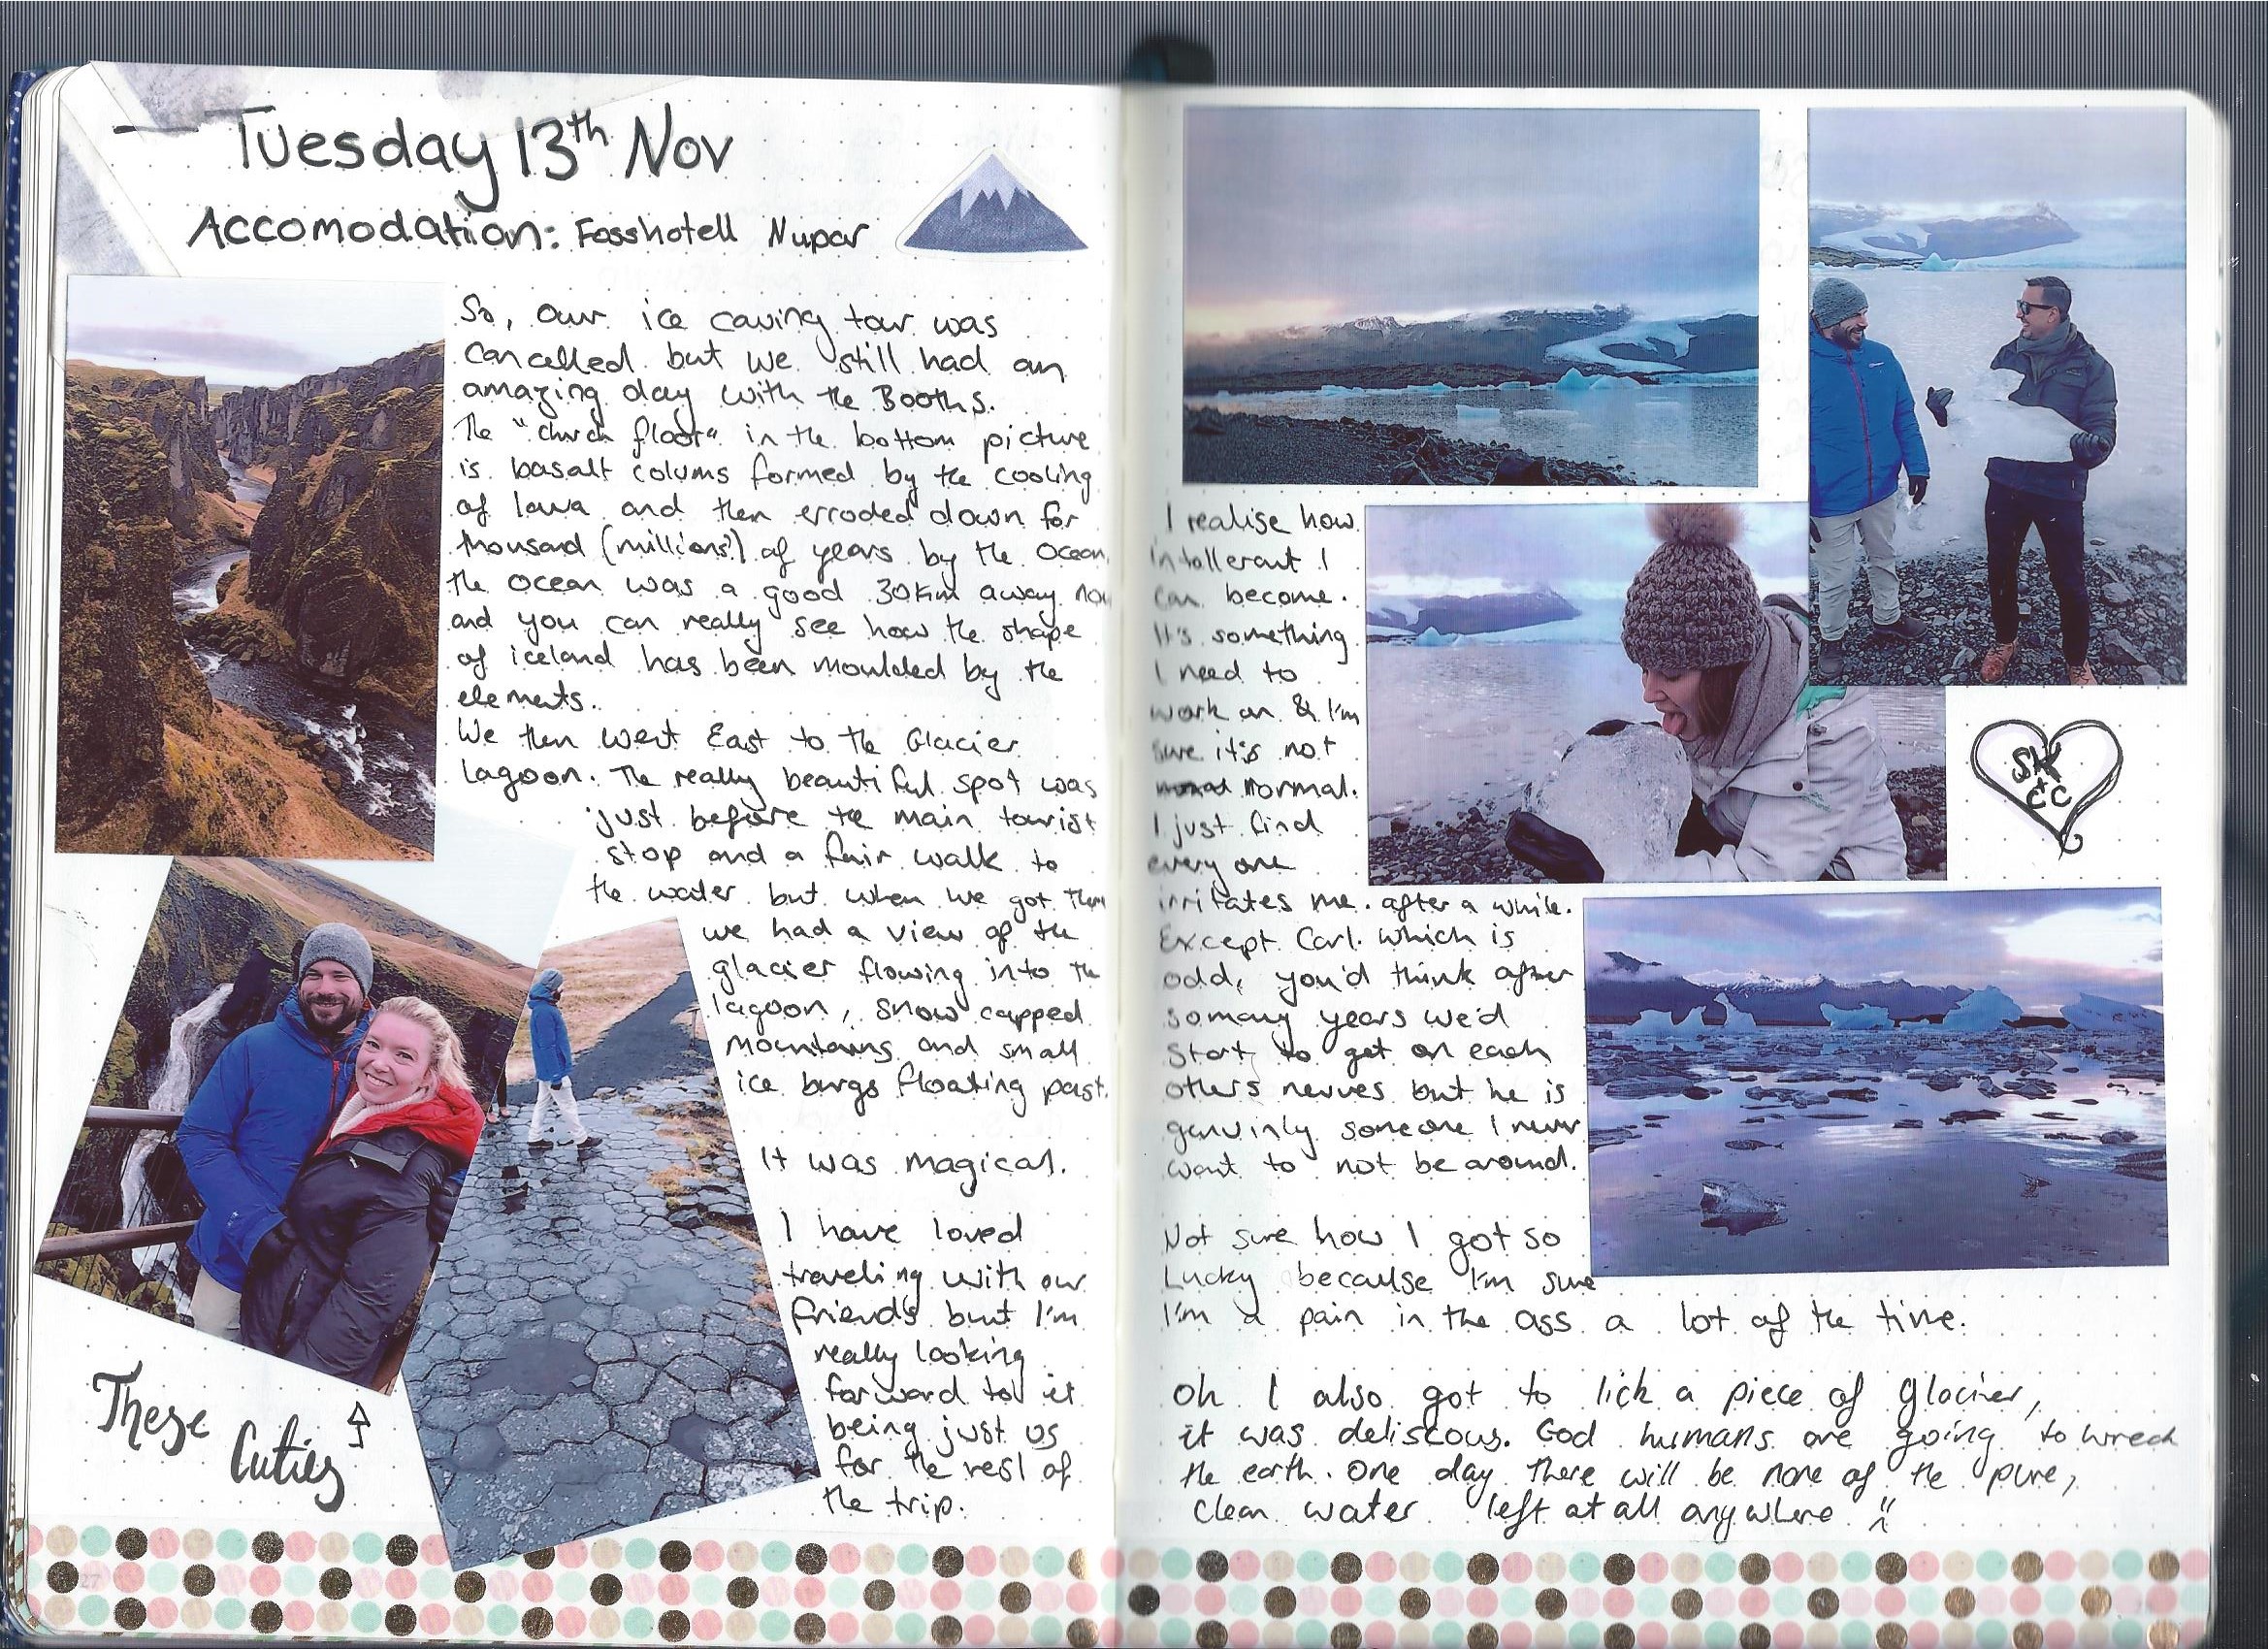 Tuesday 13th Nov
Accomodation: Fosshotell Nupar
So, our ice caving tour was
cancelled but we still had an
amazing day with the Booths.
The "church floor" in the bottom picture
is basalt colums formed by the cooling
of lava and then erroded down for
thousand (millions?) of years by the ocean
the ocean was a good 30km away now
and you can really see how the shape
of iceland has been moulded by the
elements.
We then went East to the Glacier
lagoon. The really beautiful spot was
just before the main tourist
stop and a fair walk to
the water but when we got there
we had a view of the
glacier flowing into the
lagoon, snow capped
mountains and small
ice burgs floating past.
It was magical.
I have loved
traveling with our
friends but I'm
really looking
forward to it
being just us
for the rest of
the trip.
These
Cuties
27
I realise how
intollerant I
can become.
It's something
I need to
work on & I'm
sure it's not
normal.
I just find
every one
irritates me. after a while.
Except Carl. which is
odd, you'd think after
so many years we'd
start to get on each
others nerves but he is
genuinly someone I never
want to not be around.
Not sure how I got so
Lucky because I'm sure
I'm a pain in the ass a lot of the time.
SK
+
CC
Oh I also got to lick a piece of Glacier,
it was deliscous. God humans are going to wreck
the earth. One day there will be none of the pure,
clean water left at all anywhere